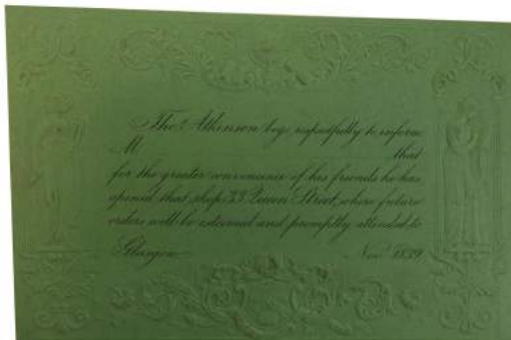 Thos. Atkinson begs respectfully to inform
M that
for the greater convenience of his friends he has
opened that shop 33 Queen Street, where future
orders will be esteemed and promptly attended to
Glasgow Novr. 1839